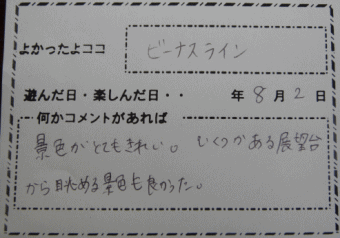 よかったよココ ビーナスライン
遊んだ日・楽しんだ日・・ 年 8 月 2 日
何かコメントがあれば
景色がとてもきれい。いくつかある展望台
から眺める景色も良かった。